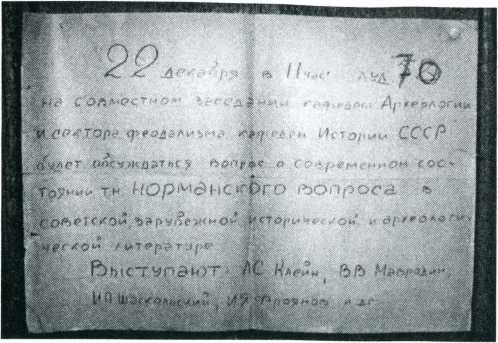 22 декабря в 11 час ауд 70
на совместном заседании кафедры Археологии
и сектора феодализма кафедры Истории СССР
будет обсуждаться вопрос о современном сос-
тоянии т.н. НОРМАНСКОГО ВОПРОСА в
советской зарубежной исторической и археологи-
ческой литературе
Выступают: ЛС Клейн, ВВ Мавродин,
ИП Шаскольский, ИЯ Фроянов и др